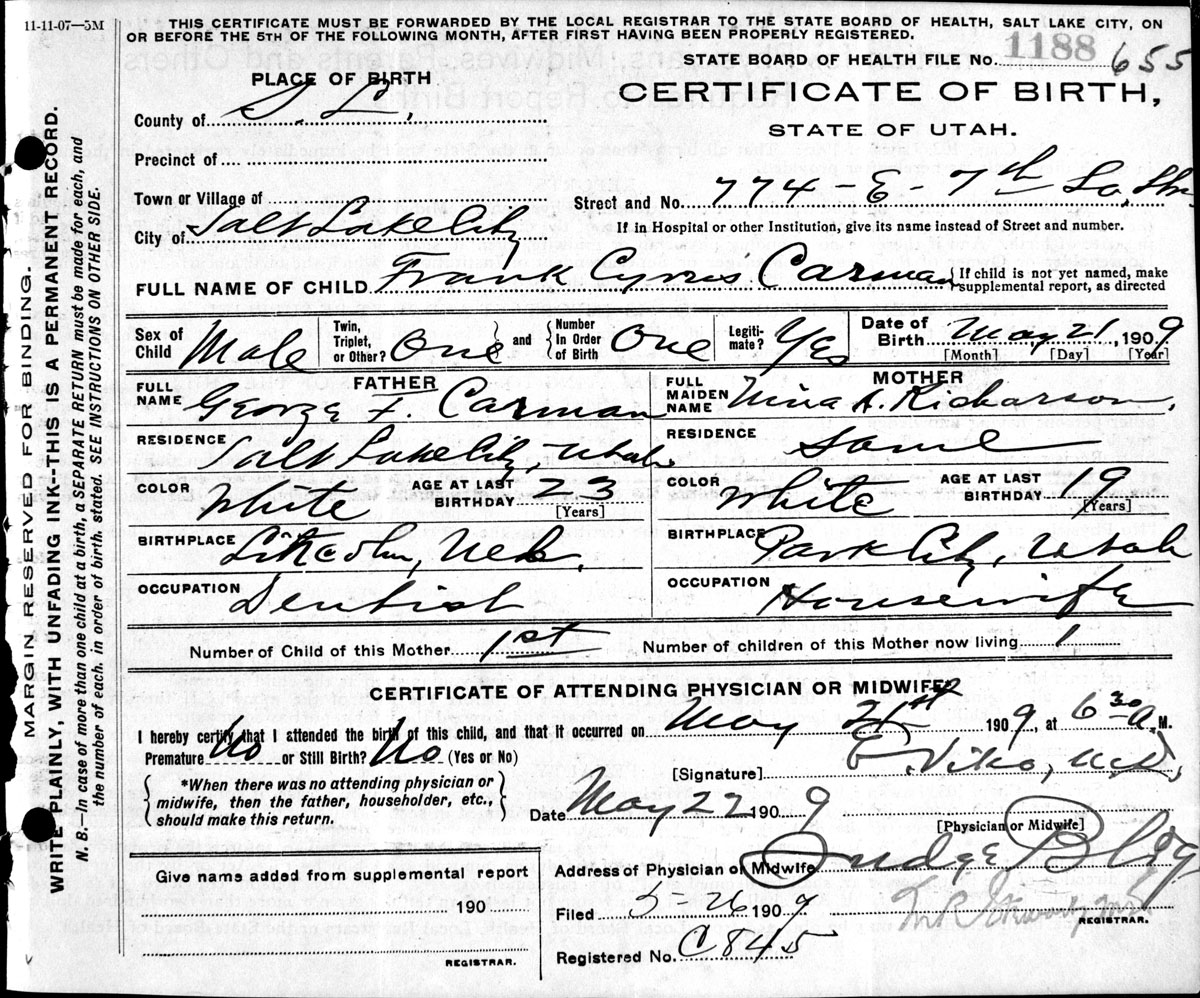 11-11-07—5M
THIS CERTIFICATE MUST BE FORWARDED BY THE LOCAL REGISTRAR TO THE STATE BOARD OF HEALTH, SALT LAKE CITY, ON
OR BEFORE THE 5TH OF THE FOLLOWING MONTH, AFTER FIRST HAVING BEEN PROPERLY REGISTERED.
STATE BOARD OF HEALTH FILE No. 1188 655
MARGIN RESERVED FOR BINDING.
WRITE PLAINLY, WITH UNFADING INK—THIS IS A PERMANENT RECORD.
N. B.—In case of more than one child at a birth, a SEPARATE RETURN must be made for each, and
the number of each, in order of birth, stated. SEE INSTRUCTIONS ON OTHER SIDE.
PLACE OF BIRTH
CERTIFICATE OF BIRTH,
STATE OF UTAH.
County of S. L.
Precinct of
Town or Village of
Street and No. 774 - E - 7th So. Str
City of Salt Lake City
If in Hospital or other Institution, give its name instead of Street and number.
FULL NAME OF CHILD Frank Cyrus Carman { If child is not yet named, make
supplemental report, as directed
Sex of Child Male
Twin, Triplet, or Other? One } and { Number In Order of Birth One
Legitimate? Yes
Date of Birth May 21, 1909
[Month] [Day] [Year]
FATHER
FULL NAME George F. Carman
RESIDENCE Salt Lake City, Utah
COLOR White AGE AT LAST BIRTHDAY 23
[Years]
BIRTHPLACE Lincoln, Neb.
OCCUPATION Dentist
MOTHER
FULL MAIDEN NAME Nina A. Richarson,
RESIDENCE Same
COLOR White AGE AT LAST BIRTHDAY 19
[Years]
BIRTHPLACE Park City, Utah
OCCUPATION Housewife
Number of Child of this Mother 1st Number of children of this Mother now living 1
CERTIFICATE OF ATTENDING PHYSICIAN OR MIDWIFE
I hereby certify that I attended the birth of this child, and that it occurred on May 21st 1909, at 6 30 A. M.
Premature No or Still Birth? No (Yes or No)
[Signature] E. Viko, M.D.
{ *When there was no attending physician or
midwife, then the father, householder, etc.,
should make this return. }
Date May 22 1909
[Physician or Midwife]
Address of Physician or Midwife Judge Bldg
Give name added from supplemental report
190
REGISTRAR.
Filed 5-26 1909
REGISTRAR.
Registered No. C845